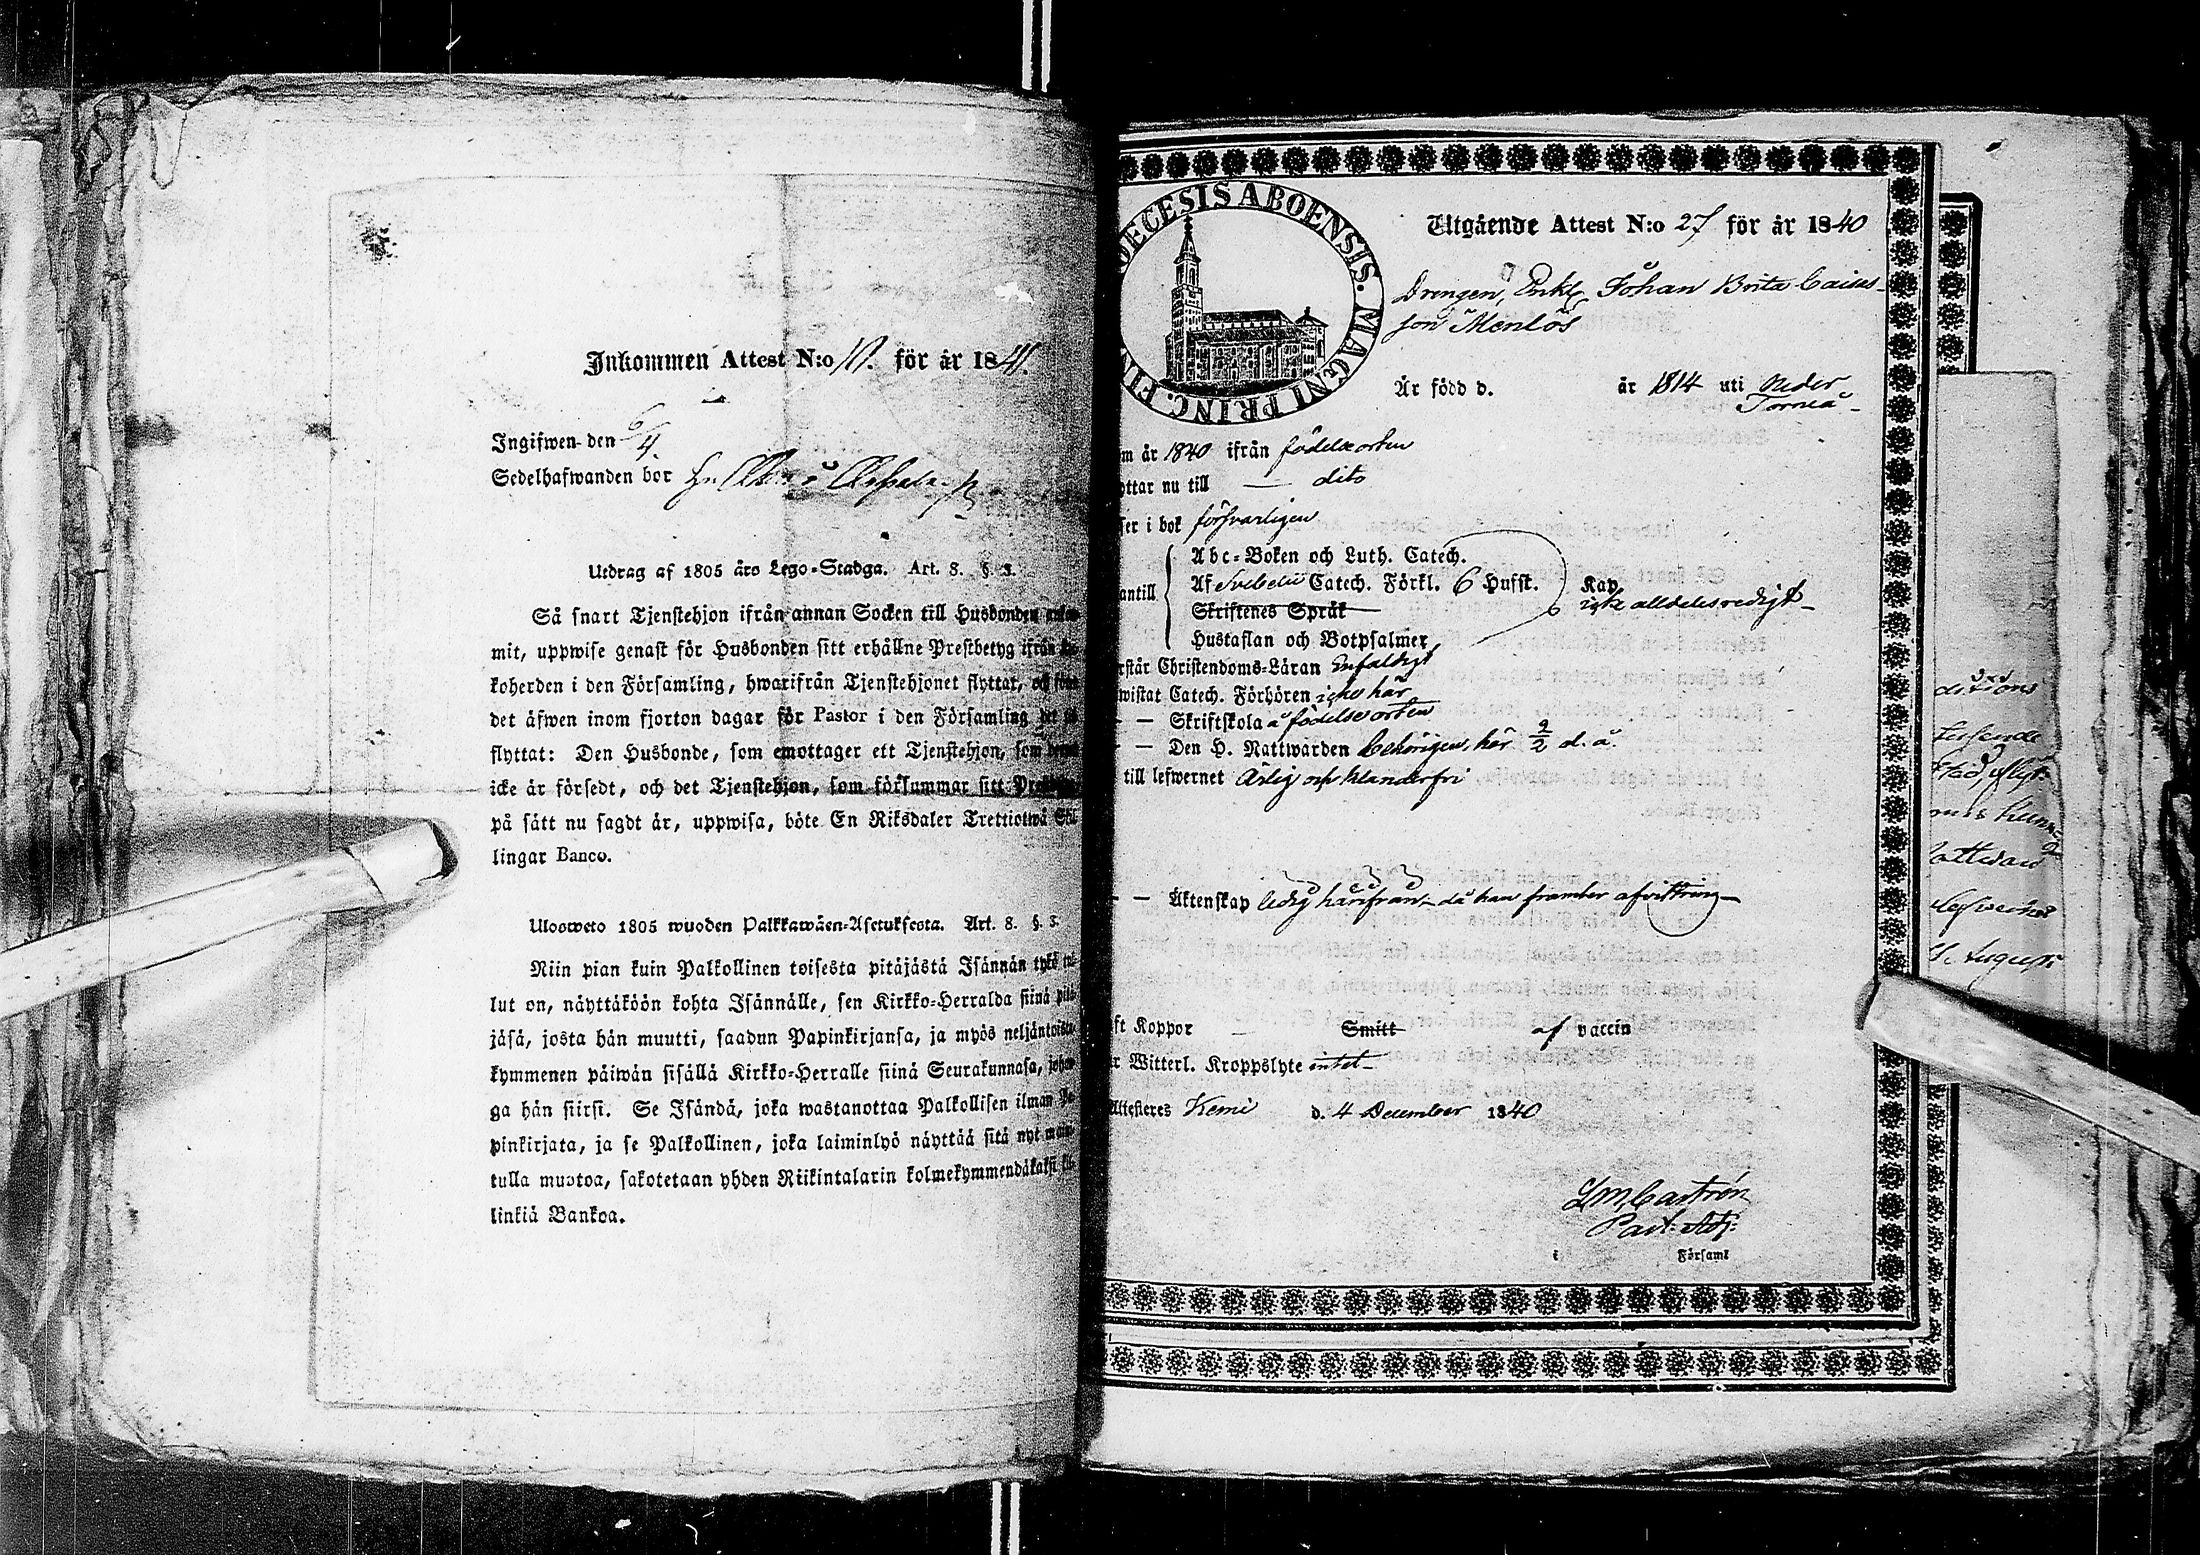 Inkommen Attest N:o 10. för år 1841.
Ingifwen den 6/4.
Sedelhafwanden bor
Utdrag af 1805 års Lego-Stadga. Art. 8. §. 3.
Så snart Tjenstehjon ifrån annan Socken till Husbonden
mit, uppwise genast för Husbonden sitt erhållne Prestbetyg ifrån
koherden i den Församling, hwarifrån Tjenstehjonet flyttat, och
det äfwen inom fjorton dagar för Pastor i den Församling det
flyttat: Den Husbonde, som emottager ett Tjenstehjon, som
icke är försedt, och det Tjenstehjon, som försummar sitt
på sätt nu sagdt är, uppwisa, böte En Riksdaler Trettiotwå Skil
lingar Banco.
Ulosweto 1805 wuoden Palkkawäen-Asetuksesta. Art. 8. §. 3.
Niin pian kuin Palkollinen toisesta pitäjästä Isännän tykö
lut on, näyttäköön kohta Isännälle, sen Kirkko-Herralda siinä pitä
jäsä, josta hän muutti, saadun Papinkirjansa, ja myös neljäntoista
kymmenen päiwän sisällä Kirkko-Herralle siinä Seurakunnasa, johon
ga hän siirsi. Se Isändä, joka wastanottaa Palkollisen ilman Pa
pinkirjata, ja se Palkollinen, joka laiminlyö näyttää sitä nyt
tulla muotoa, sakotetaan yhden Riikintalarin kolmekymmendäkaksi
linkiä Bankoa.
DECESIS ABOENSIS. MAGNI PRINC. FIN
Utgående Attest N:o 27 för år 1840
Drengen, Enkl. Johan Brita Caisas-
son Menlös
Är född d. år 1814 uti Neder
Torneå
m år 1840 ifrån födelseorten
ottar nu till — dito
ser i bok försvarligen
Abc-Boken och Luth. Catech.
antill Af Svebelii Catech. Förkl. 6 Hufst. Kap
Skriftenes Språk icke alldeles redigt
Hustaflan och Botpsalmer
rstår Christendoms-Läran Enfaldigt
wistat Catech. Förhören icke här
— — Skriftskola å födelseorten
— Den H. Nattwarden behörigen, här 2/2 d. å.
till lefwernet Ärlig och klanderfri
— — Äktenskap ledig härifrån, då han framter afvittring
ft Koppor — Smitt af vaccin
r Witterl. Kroppslyte intet
Attesteres Kemi d. 4 December 1840
L M Castrén
Past. Adj:
i Församl
ditions
Nattward
Lefverne
Augusti